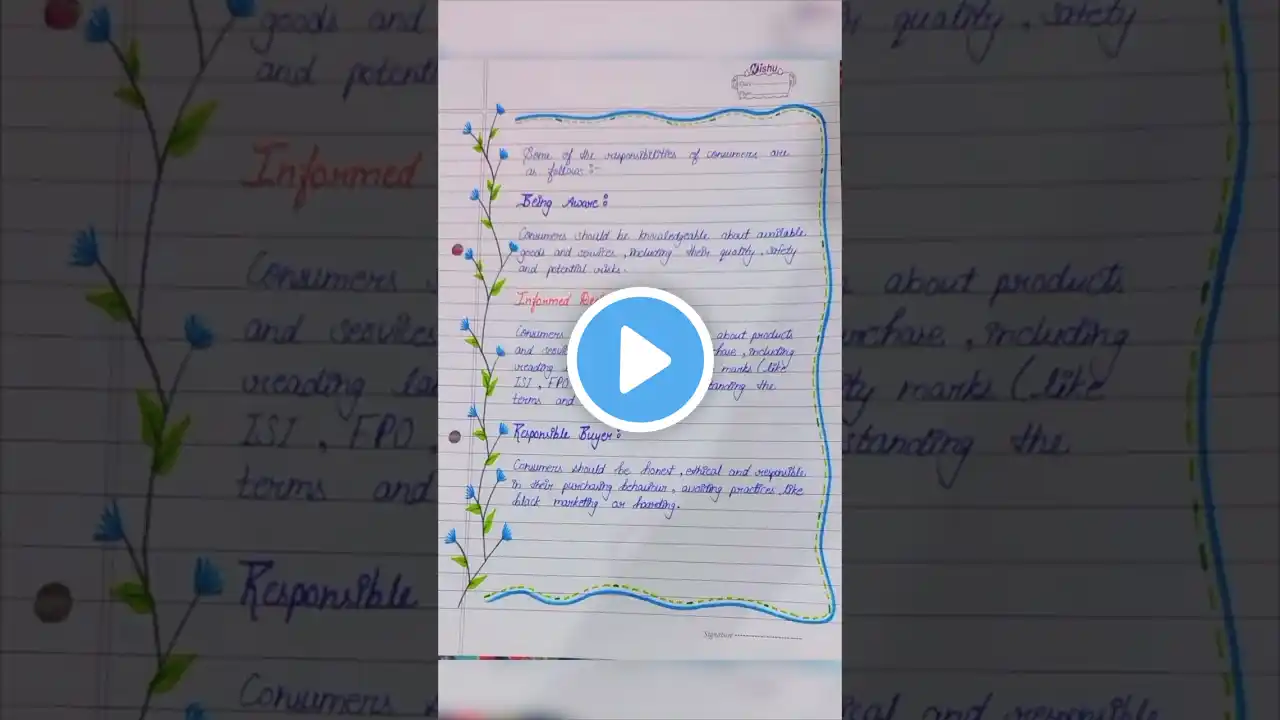 Nishu
Some of the responsibilities of consumers are
as follows :-
Being Aware :
Consumers should be knowledgeable about available
goods and services, including their quality, safety
and potential risks.
Informed
Consumers about products
and including
reading marks (like
ISI, FPO the
terms and
Responsible Buyer :
Consumers should be honest, ethical and responsible
in their purchasing behaviour, avoiding practices like
black marketing or hoarding.
Signature